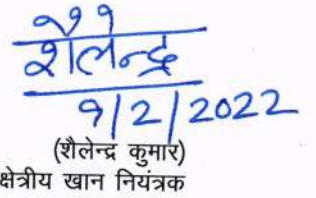 शैलेन्द्र
9/2/2022
(शैलेन्द्र कुमार)
क्षेत्रीय खान नियंत्रक